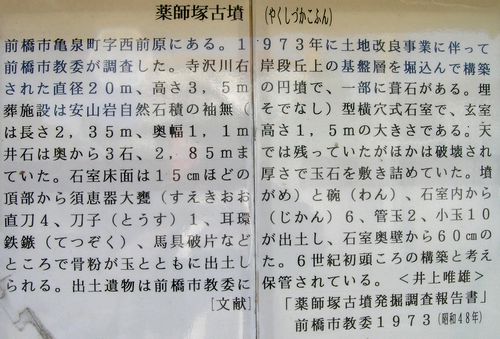 薬師塚古墳 (やくしづかこふん)
前橋市亀泉町字西前原にある。1973年に土地改良事業に伴って
前橋市教委が調査した。寺沢川右岸段丘上の基盤層を堀込んで構築
された直径20m、高さ3,5mの円墳で、一部に葺石がある。埋
葬施設は安山岩自然石積の袖無(そでなし)型横穴式石室で、玄室
は長さ2,35m、奥幅1,1m高さ1,5mの大きさである。天
井石は奥から3石、2,85mまでは残っていたがほかは破壊され
ていた。石室床面は15㎝ほどの厚さで玉石を敷き詰めていた。墳
頂部から須恵器大甕(すえきおおがめ)と碗(わん)、石室内から
直刀4、刀子(とうす)1、耳環(じかん)6、管玉2、小玉10
鉄鏃(てつぞく)、馬具破片などが出土し、石室奥壁から60㎝の
ところで骨粉が玉とともに出土した。6世紀初頭ころの構築と考え
られる。出土遺物は前橋市教委に保管されている。<井上唯雄>
[文献]「薬師塚古墳発掘調査報告書」
前橋市教委1973(昭和48年)